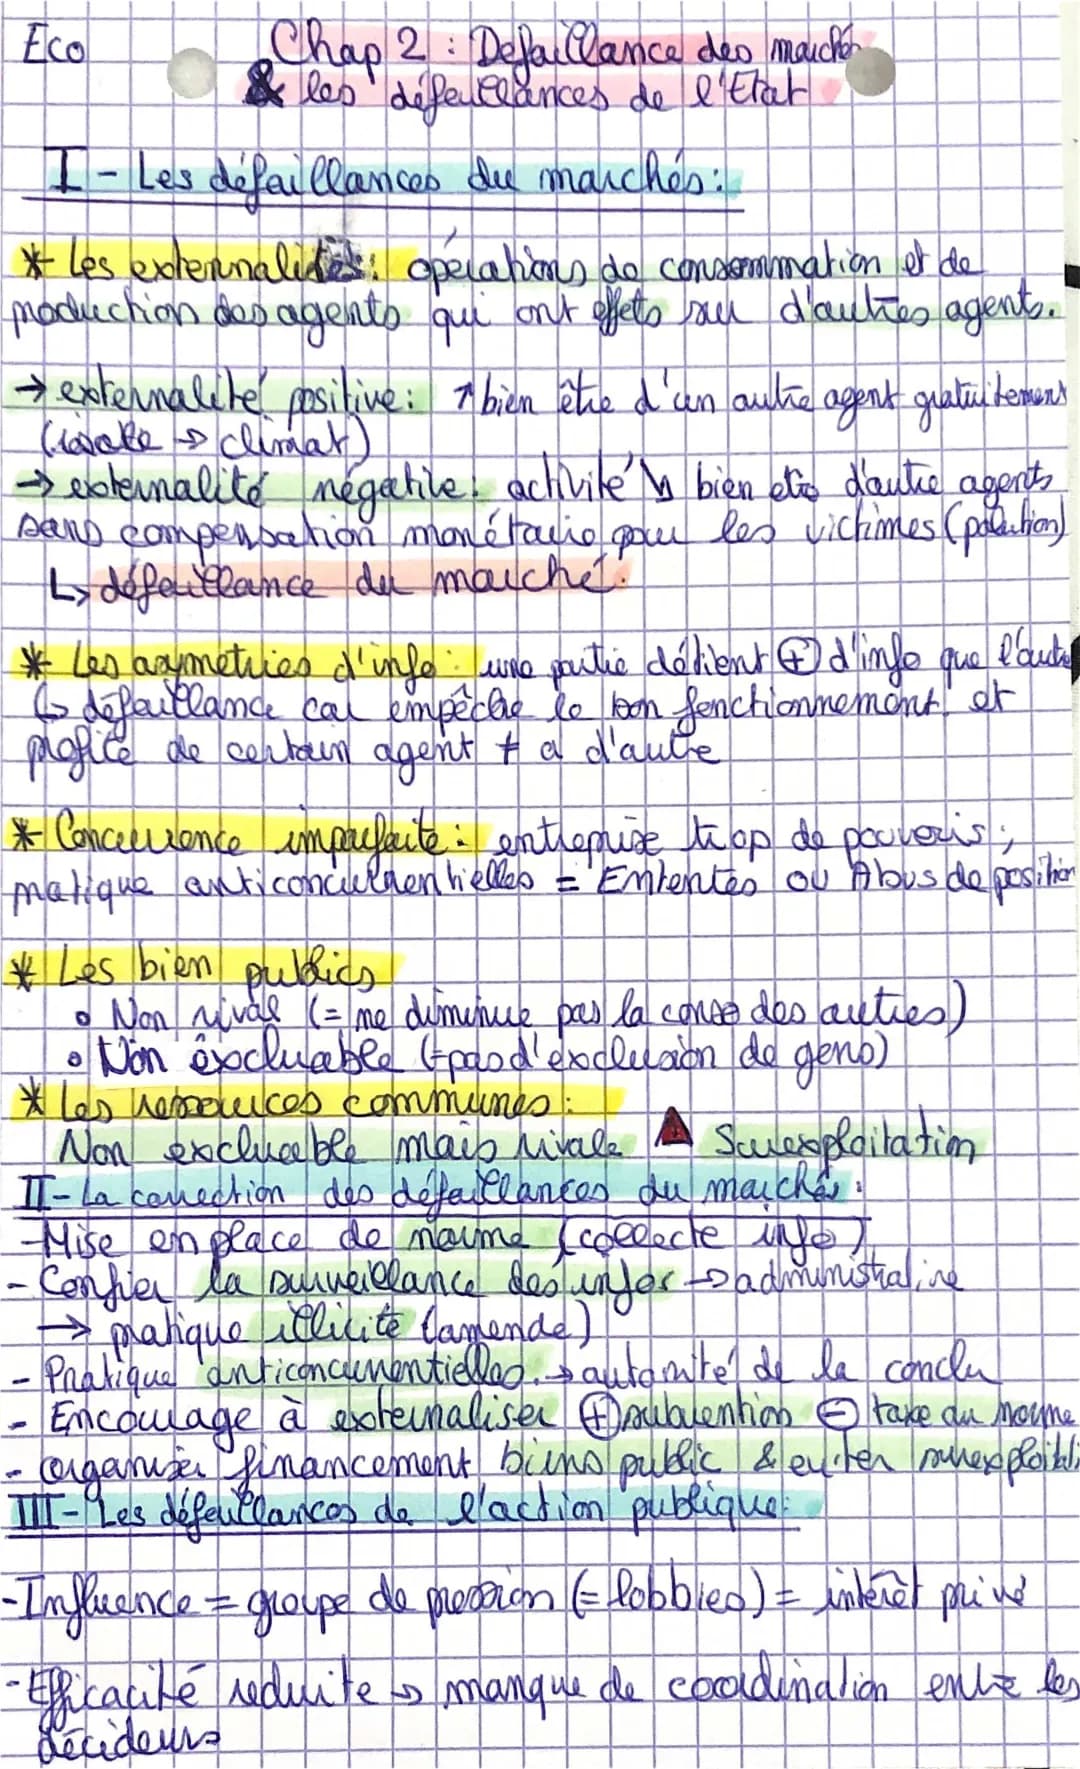 Eco
Chap 2 : Defaillance des marchés
& les défaillances de l'Etat
I - Les défaillances du marchés :
* Les externnalités : opérations de consommation et de
production des agents qui ont effets sur d'autres agents.
→ externalité positive : ↗ bien être d'un autre agent gratuitement
( → climat)
→ externalité négative : activité ↘ bien etre d'autre agents
sans compensation monétaire pour les victimes (polution)
↳ défaillance du marché.
* Les asymetries d'info : une partie détient ⊕ d'info que l'autre
↳ défaillance car empêche le bon fonctionnement et
profite de certain agent + a d'autre
* Concurrence imparfaite : entreprise trop de pouvoirs ;
pratique anticoncurrentielles = Ententes ou Abus de position
* Les bien publics
• Non rival (= ne diminue pas la conso des autres)
• Non excluable (= pas d'exclusion de gens)
* Les ressources communes :
Non excluable mais rivale ▲ Surexploitation
II - La correction des défaillances du marchés :
- Mise en place de norme (collecte info)
- Confier la surveillance des infos → administrative
→ pratique illicite (amende)
- Pratique anticoncurrentielles. → automité de la conclu
- Encourage à externaliser ⊕ subvention ⊖ taxe ou norme
- organiser financement biens public & eviter surexploitati
III - Les défaillances de l'action publique :
- Influence = groupe de pression (= lobbies) = intérêt privé
- Efficacité reduite → manque de coordination entre les
décideurs